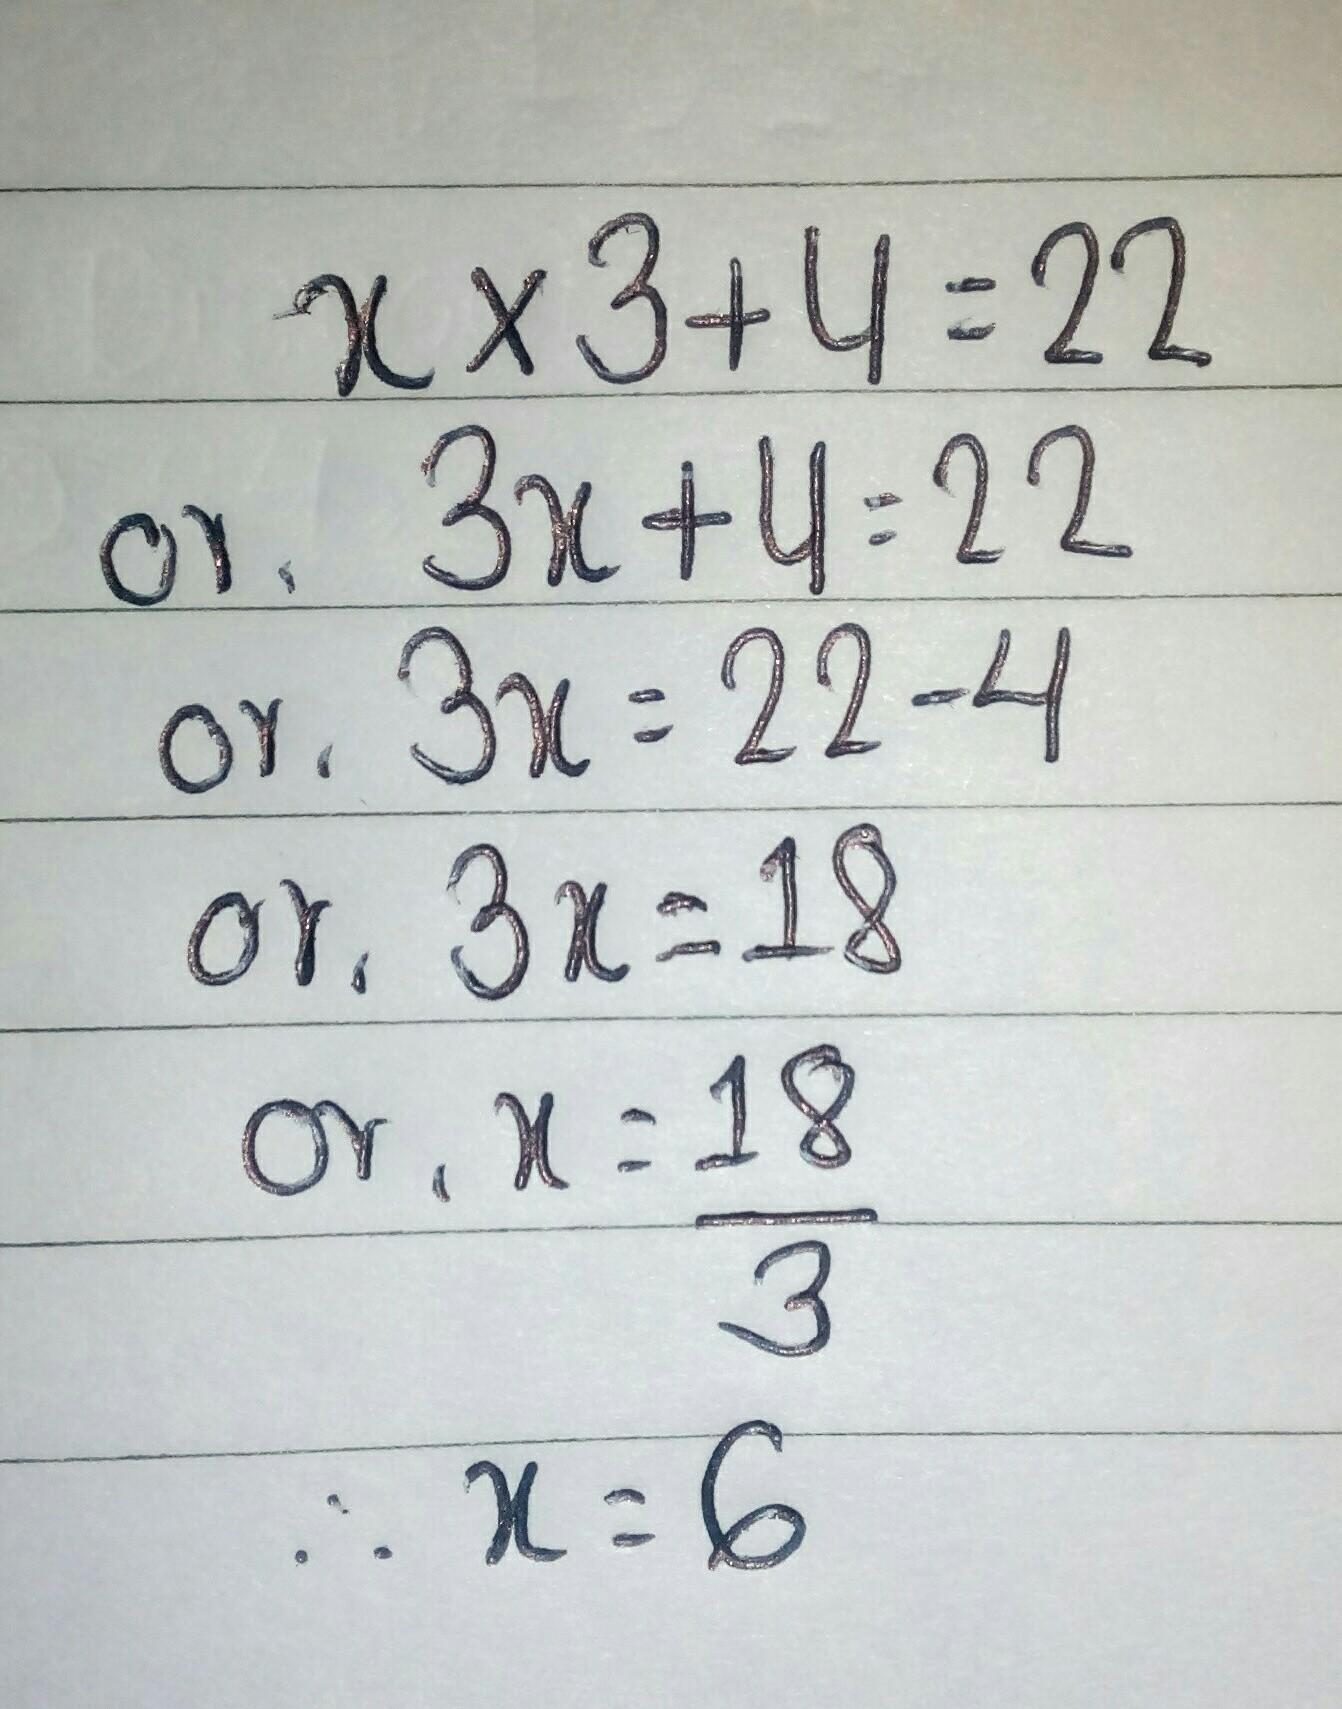 x × 3 + 4 = 22
or, 3x + 4 = 22
or, 3x = 22 - 4
or, 3x = 18
or, x = 18
3
∴ x = 6